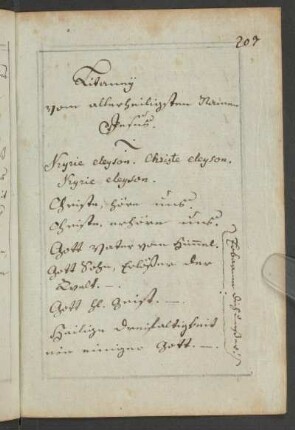 203
Litaney
vom allerheiligsten Namen
Jesus.
Kyrie eleyson. Christe eleyson.
Kyrie eleyson.
Christe, höre uns.
Christe, erhöre uns.
Gott Vater vom Himmel.
Gott Sohn, Erlöser der
Welt. —
Gott hl. Geist. —
Heilige Dreifaltigkeit
ein einiger Gott. —
Erbarme dich unser!